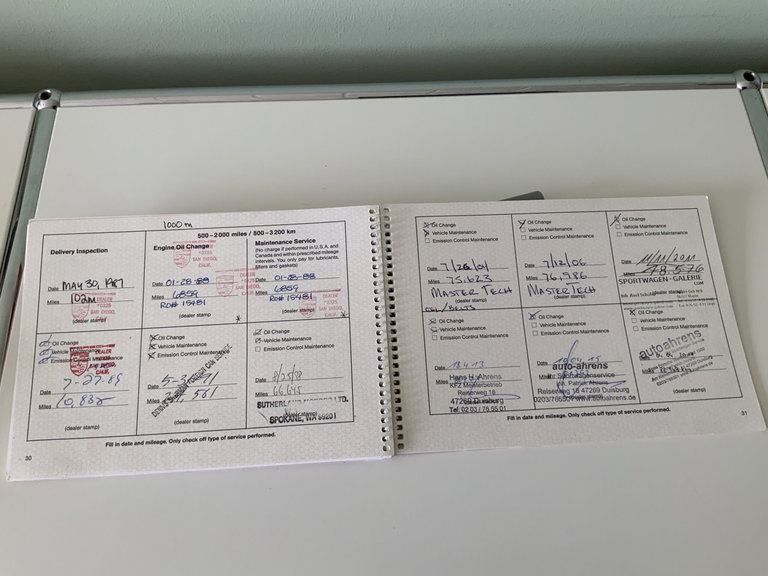 1000 m
500-2000 miles / 800-3200 km
Delivery Inspection
Date MAY 30, 1987
Miles 10 m
(dealer stamp)
Engine Oil Change
DEALER
SAN DIEGO,
CALIF.
Date 01-28-88
Miles 6859
RO# 15481
(dealer stamp)
*
Maintenance Service
(No charge if performed in U.S.A. and
Canada and within prescribed mileage
intervals. You only pay for lubricants,
filters and gaskets)
Date 01-28-88
Miles 6859
RO# 15481
DEALER
SAN DIEGO,
(dealer stamp)
*
Oil Change
Vehicle Maintenance
Emission Control Maintenance
DEALER
SAN DIEGO,
CALIF.
Date 7-27-89
Miles 10,832
(dealer stamp)
Oil Change
Vehicle Maintenance
Emission Control Maintenance
Date
Miles
(dealer stamp)
Oil Change
Vehicle Maintenance
Emission Control Maintenance
Date
Miles 66,645
SPOKANE, WA 99201
(dealer stamp)
Fill in date and mileage. Only check off type of service performed.
30
Oil Change
Vehicle Maintenance
Emission Control Maintenance
Date 7/26/01
Miles 75,623
MASTER TECH
(dealer stamp)
Oil Change
Vehicle Maintenance
Emission Control Maintenance
Date 7/12/06
Miles 76,986
MASTER TECH
(dealer stamp)
Oil Change
Vehicle Maintenance
Emission Control Maintenance
Date 11/11/2011
Miles 78,576
SPORTWAGEN-GALERIE
.COM
(dealer stamp)
OIL/BELTS
Oil Change
Vehicle Maintenance
Emission Control Maintenance
Date 18.4.13
Hans b. Ahrens
KFZ Meisterbetrieb
Reiserweg 18
47269 Duisburg
Tel: 02 03 / 76 55 01
Oil Change
Vehicle Maintenance
Emission Control Maintenance
Date
auto-ahrens
Sportwagenservice
Inh. Patrick Ahrens
Reiserweg 18 47269 Duisburg
0203/765501 www.autoahrens.de
Oil Change
Vehicle Maintenance
Emission Control Maintenance
Date
autoahrens
Miles
(dealer stamp)
Fill in date and mileage. Only check off type of service performed.
31